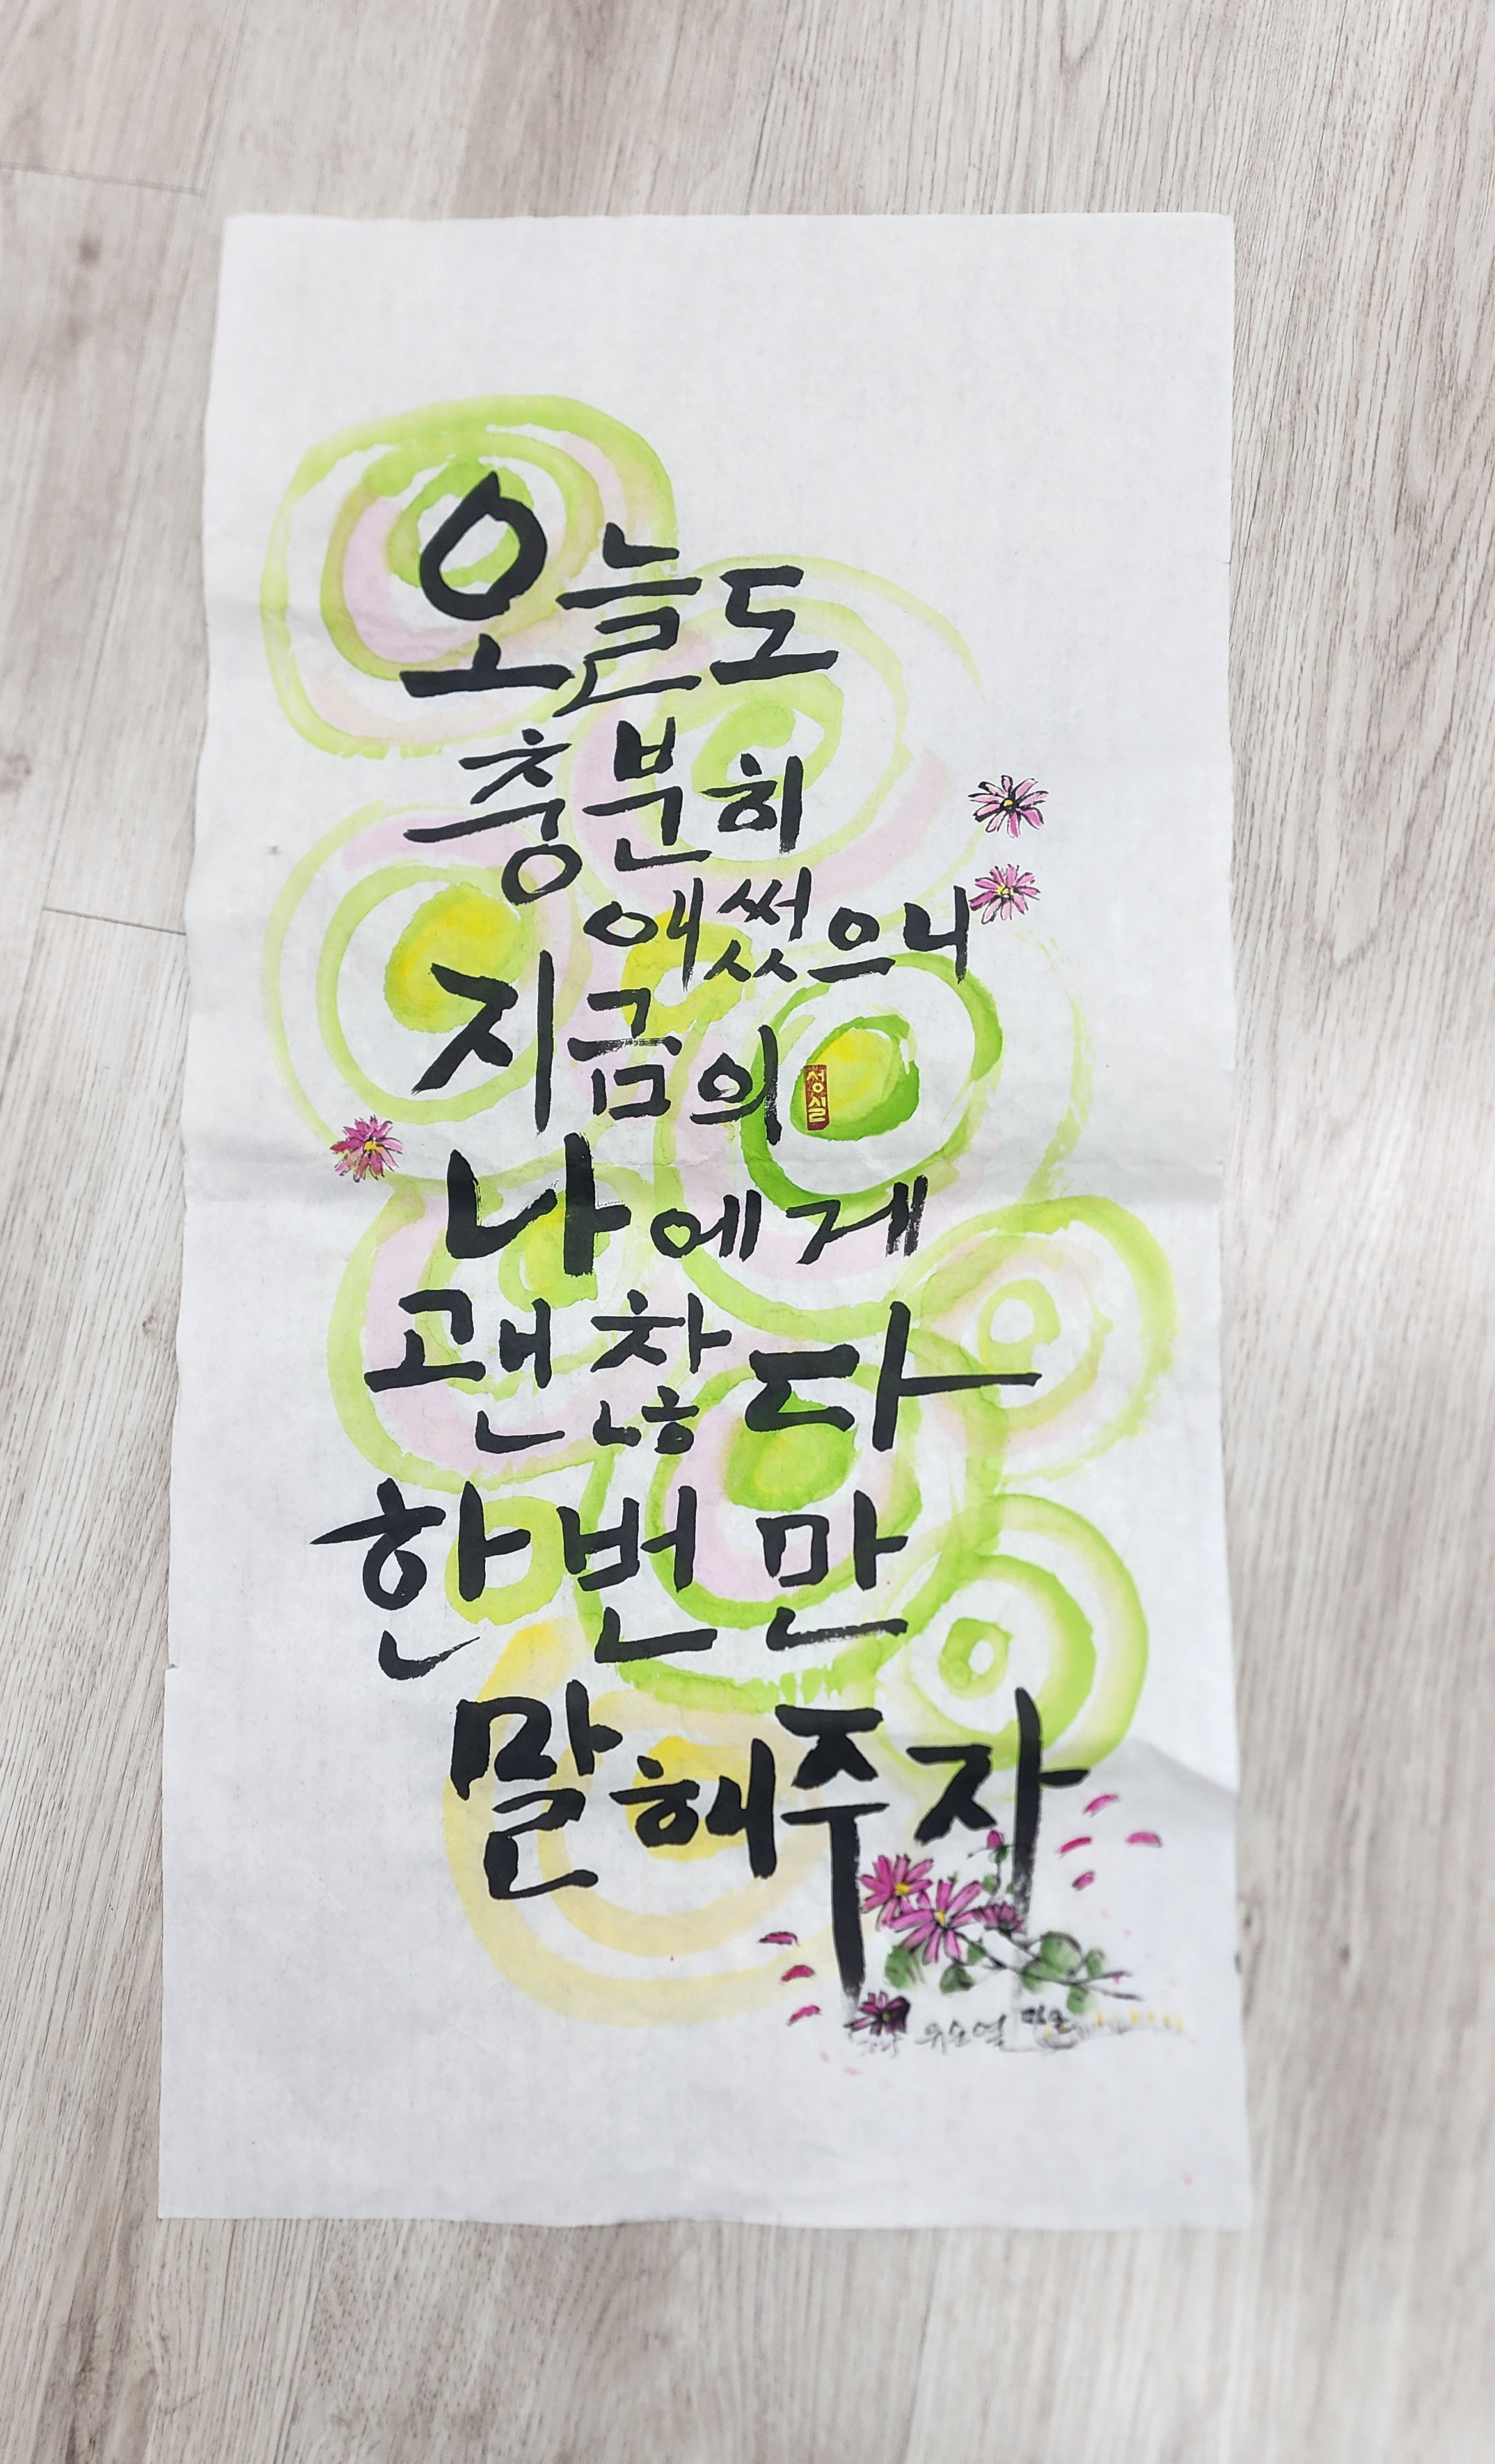 오늘도
충분히
애썼으니
지금의
성실
나에게
괜찮다
한번만
말해주자
유순열